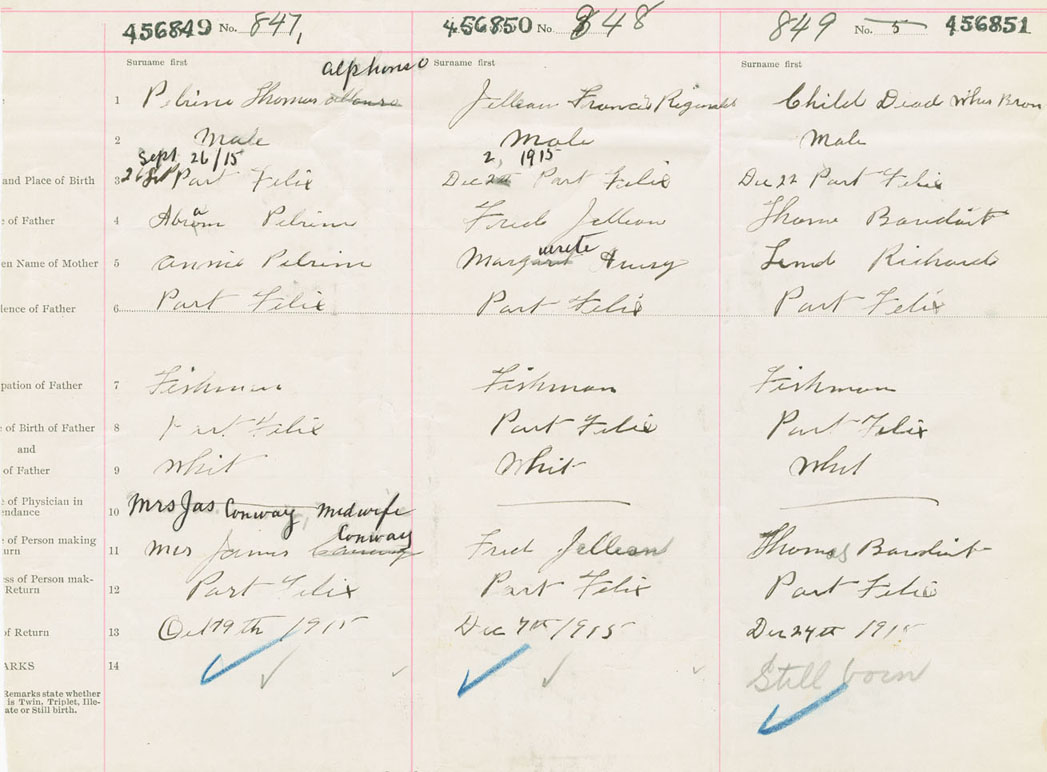 456849 No. 847, 456850 No 848 849 No. 5 456851
Surname first Alphonso Surname first Surname first
1 Pelrine Thomas Jellean Francis Reginald Child Dead When Bron
2 Male Male Male
Sept 26/15 2, 1915
and Place of Birth 3 26 Part Felix Dec Part Felix Dec 22 Part Felix
e of Father 4 Abram Pelrine Fred Jellean Thoms Baudint
en Name of Mother 5 Annie Pelrine Margarete Richard
lence of Father 6 Part Felix Part Felix Part Felix
pation of Father 7 Fishman Fishman Fishman
e of Birth of Father 8 Part Felix Part Felix Part Felix
and
of Father 9 Whit Whit Whit
e of Physician in
endance 10 Mrs Jas Conway, Midwife
Conway
e of Person making
urn 11 Mrs James Fred Jellean Thomas Baudint
ess of Person mak-
Return 12 Part Felix Part Felix Part Felix
of Return 13 Oct 19th / 1915 Dec 7th / 1915 Dec 24th 1915
ARKS 14 Still born
Remarks state whether
is Twin, Triplet, Ille-
ate or Still birth.